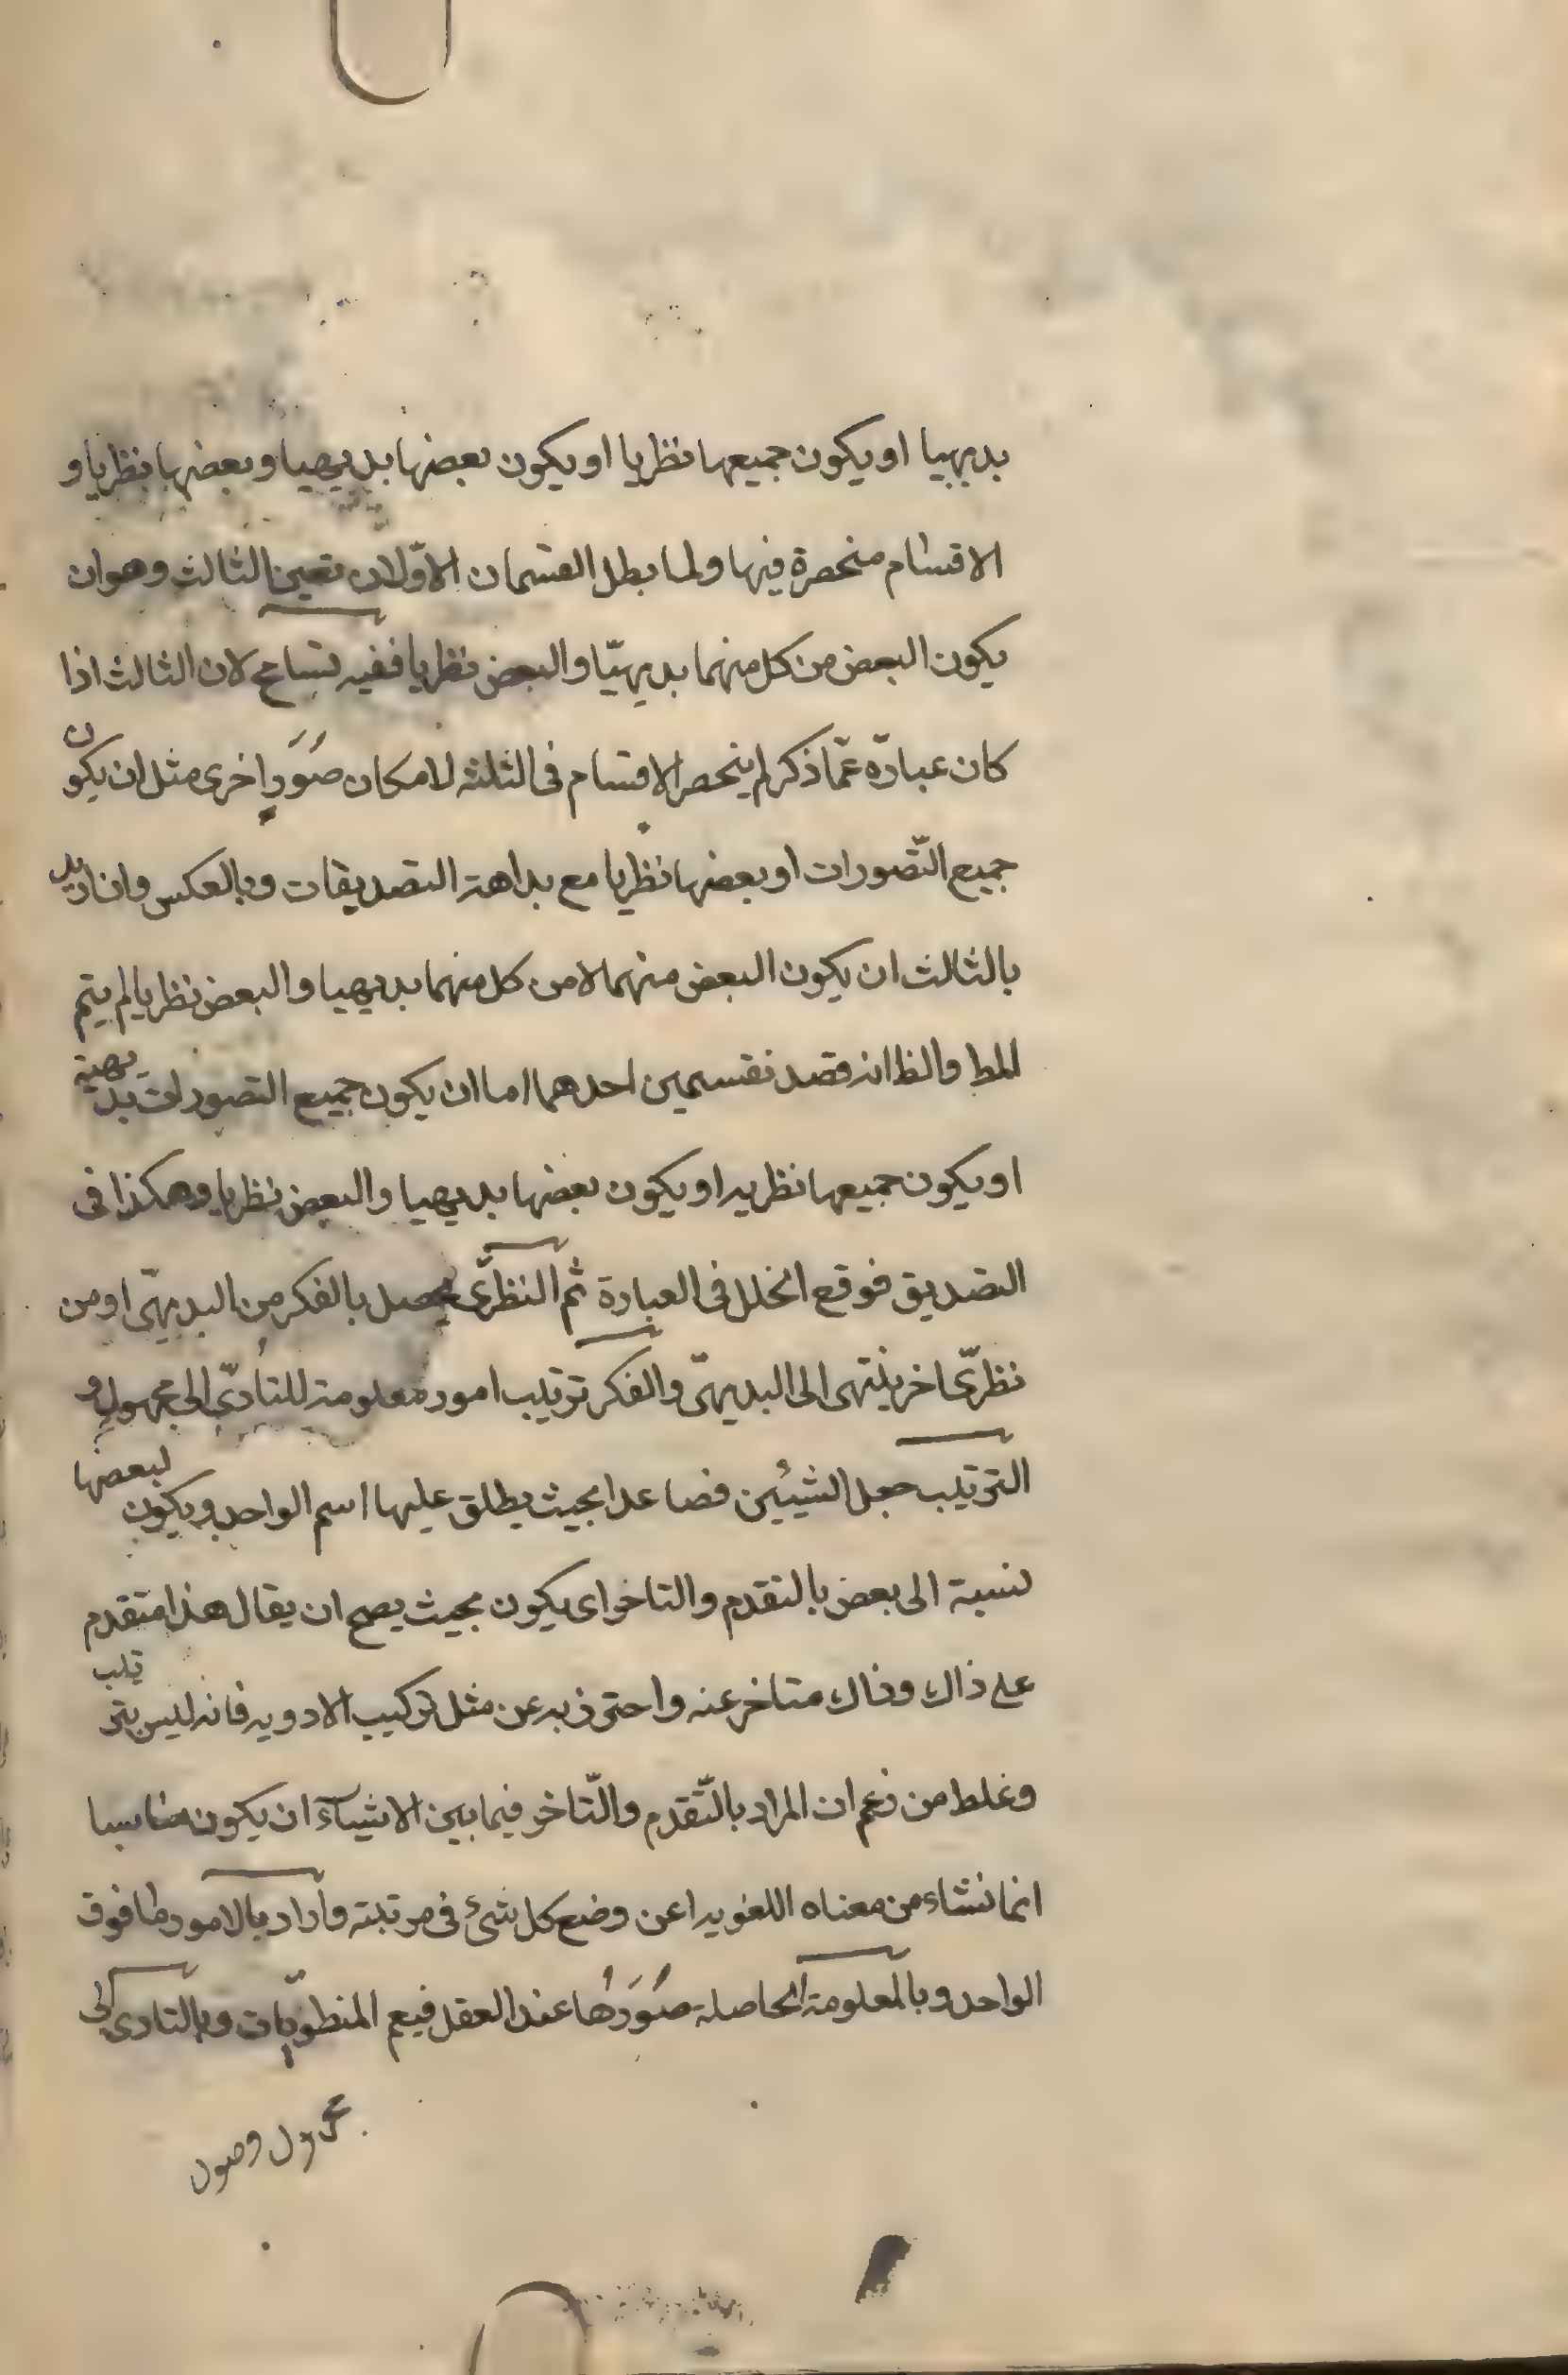 بديهيا او يكون جميعها نظريا او يكون بعضها بديهيا وبعضها نظريا و
الاقسام منحصرة فيها ولما بطل القسمان الاوّلان تعين الثالث وهو ان
يكون البعض من كل منهما بديهيّا والبعض نظريا ففيه تسامح لان الثالث اذا
كان عبارة عمّا ذكر لم ينحصر الاقسام فى الثلثه لامكان صُوَرٍ اخرى مثل ان يكون
جميع التّصورات او بعضها نظريا مع بداهة التصديقات وبالعكس وان اريد
بالثالث ان يكون البعض منهما لا من كل منهما بديهيا والبعض نظريا لم يتم
المط والظ انه قصد تقسيمين احدهما اما ان يكون جميع التصورات بديهية
او يكون جميعها نظريه او يكون بعضها بديهيا والبعض نظريا وهكذا فى
التصديق فوقع الخلل فى العبارة ثم النظرىّ يحصل بالفكر من البديهىّ او من
نظرىّ اخر ينتهى الى البديهىّ والفكر ترتيب امور معلومة للتأدّى الى مجهول و
الترتيب جعل الشيئين فصاعدا بحيث يطلق عليها اسم الواحد ويكون لبعضها
نسبة الى بعض بالتقدم والتاخر اى يكون بحيث يصح ان يقال هذا متقدم
على ذاك وذاك متاخر عنه واحترز به عن مثل تركيب الادويه فانه ليس بترتيب
وغلط من زعم ان المراد بالتّقدم والتّاخر فيما بين الاشيآء ان يكون مناسبا
انما نشاء من معناه اللغويه اعن وضع كل شئ فى مرتبته واراد بالامور ما فوق
الواحد وبالمعلومة الحاصلة صُوَرُها عند العقل فيعم المنظوّيات وبالتادى الى
وصول